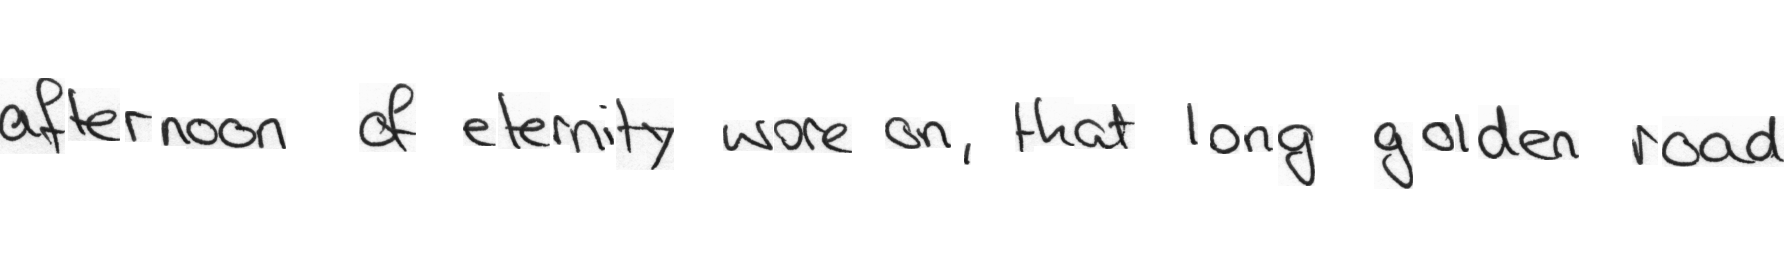 afternoon of eternity wore on, that long golden road